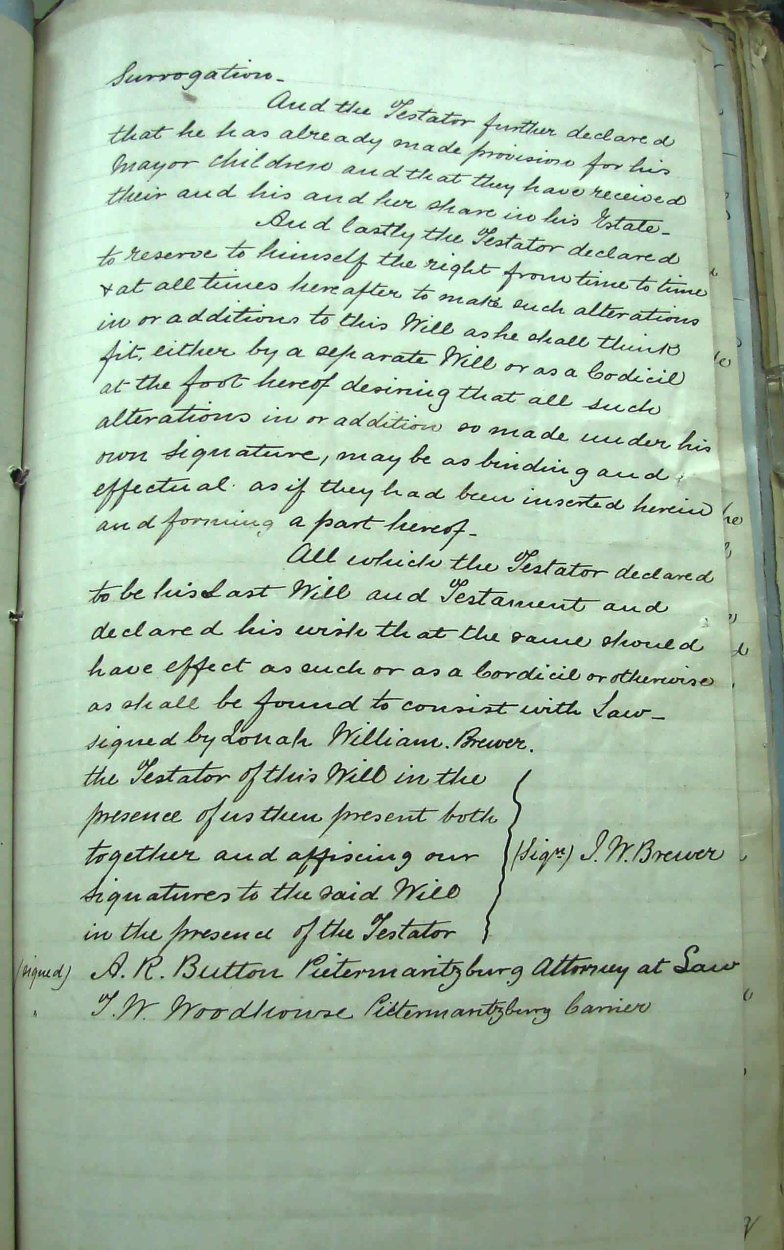 Surrogation -
And the Testator further declared
that he has already made provision for his
Mayor children and that they have received
their and his and her share in his Estate -
And lastly the Testator declared
to reserve to himself the right from time to time
& at all times hereafter to make such alterations
in or additions to this Will as he shall think
fit, either by a separate Will or as a Codicil
at the foot hereof desiring that all such
alterations in or addition so made under his
own signature, may be as binding and
effectual as if they had been inserted herein
and forming a part hereof -
All which the Testator declared
to be his Last Will and Testament and
declared his wish that the same should
have effect as such or as a Cordicil or otherwise
as shall be found to consist with Law -
signed by Jonah William. Brewer.
the Testator of this Will in the
presence of us then present both
together and affixing our
signatures to the said Will
in the presence of the Testator
(Signd) J. W. Brewer
(signed) A. R. Button Pietermaritzburg Attorney at Law
" J. W. Woodhouse Pietermaritzburg Carrier